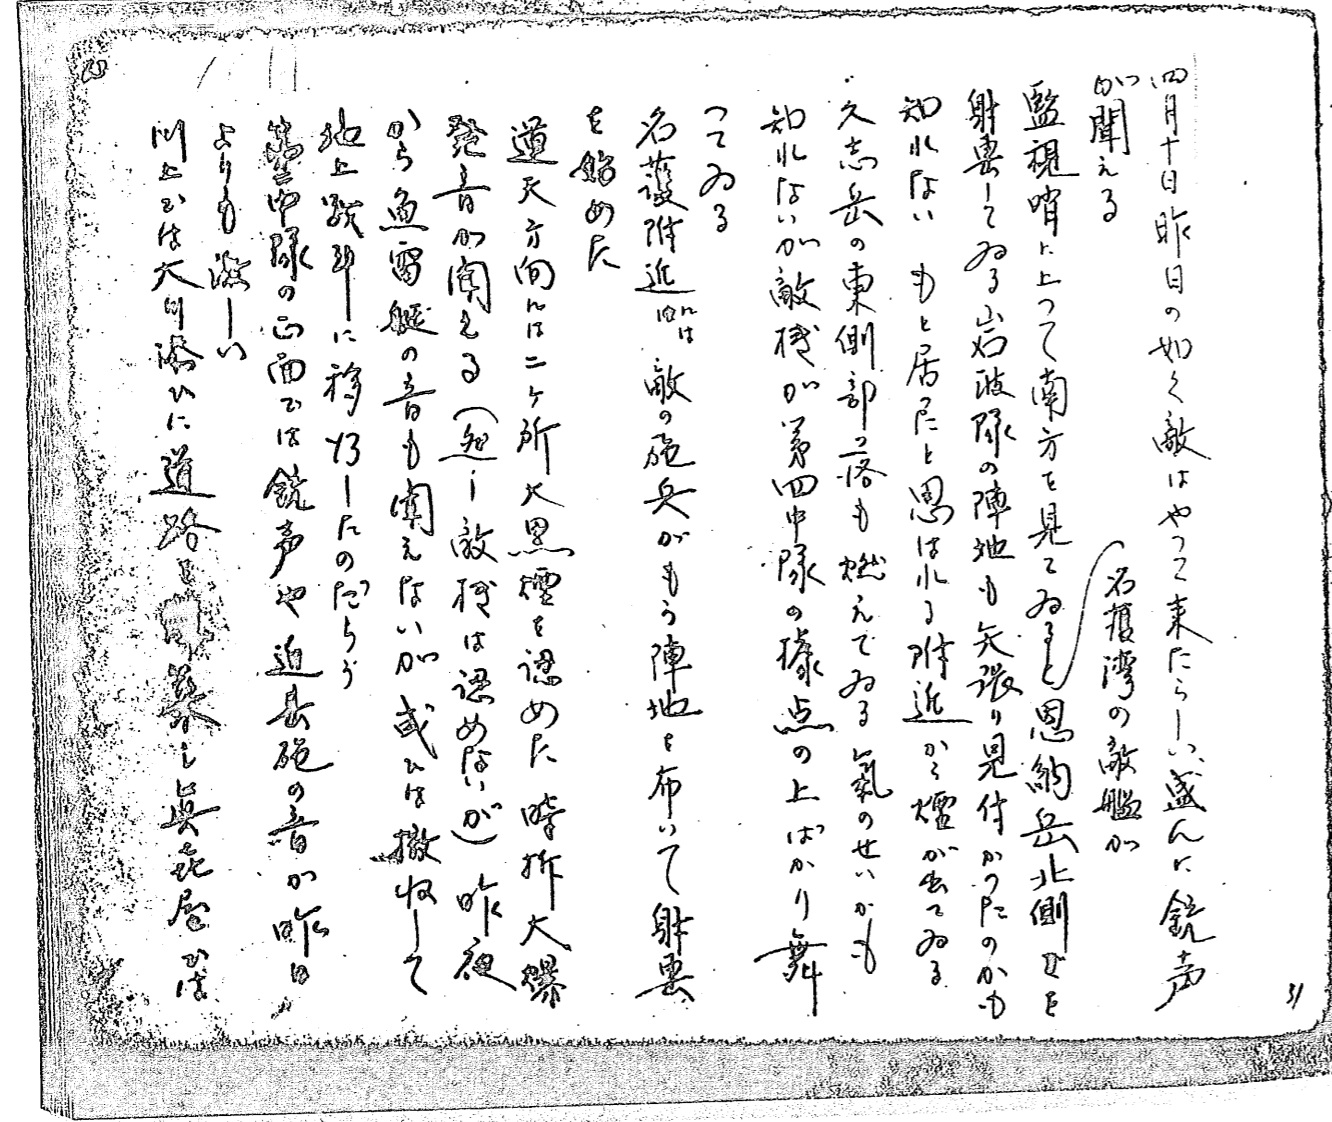 31
四月十日昨日の如く敵はやつて来たらしい、盛んに銃声
が聞える
名護湾の敵艦が
監視哨に上つて南方を見てゐると恩納岳北側をを
射撃してゐる 岩波隊の陣地も矢張り見付かつたのかも
知れない もと居たと思はれる附近から煙が出てゐる
久志岳の東側部落も燃えてゐる 氣のせいかも
知れないが敵機が第四中隊の據点の上ばかり舞
つてゐる
名護附近には敵の砲兵がもう陣地を布いて射撃
を始めた
運天方向には二ヶ所大黒煙を認めた 時折大爆
発音が聞える(但し敵機は認めないが) 昨夜
から魚雷艇の音も聞えないが或ひは撤收して
地上戦斗に移行したのだらう
中隊の正面では銃声や迫長砲の音が昨日
よりも激しい
川上では大川添ひに道路を 築し真喜屋では